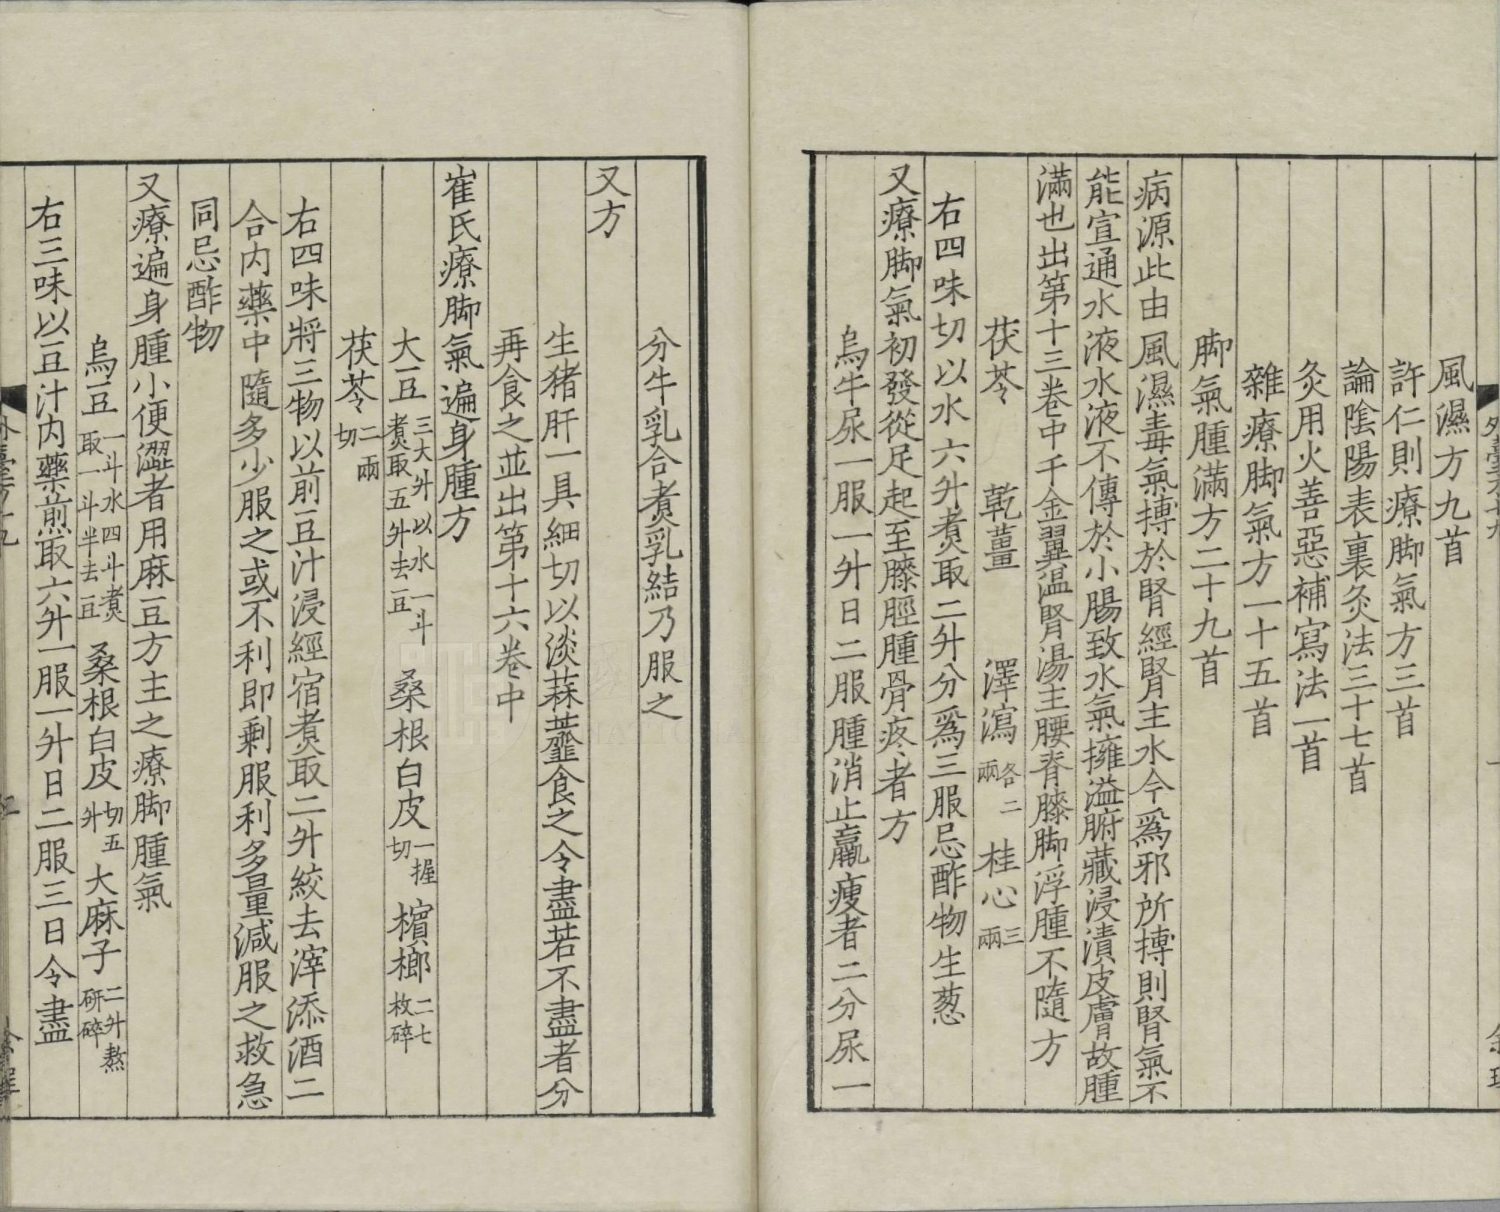 風濕方九首
許仁則療脚氣方三首
論隂陽表裏灸法三十七首
灸用火善惡補寫法一首
雜療脚氣方一十五首
脚氣腫滿方二十九首
病源此由風濕毒氣搏於腎經腎主水今爲邪所搏則腎氣不
能宣通水液水液不傳於小腸致水氣擁溢腑藏浸漬皮膚故腫
滿也出第十三卷中千金翼温腎湯主腰脊膝脚浮腫不隨方
茯苓 乾薑 澤瀉各二兩 桂心三兩
右四味切以水六升煑取二升分爲三服忌酢物生葱
又療脚氣初發從足起至膝脛腫骨疼者方
烏牛尿一服一升日二服腫消止羸瘦者二分尿一
分牛乳合煑乳結乃服之
又方
生猪肝一具細切以淡蒜虀食之令盡若不盡者分
再食之並出第十六卷中
崔氏療脚氣遍身腫方
大豆三大升以水一斗煑取五升去豆 桑根白皮一握切 檳榔二七枚碎
茯苓二兩切
右四味將三物以前豆汁浸經宿煑取二升絞去滓添酒二
合内藥中隨多少服之或不利即剩服利多量減服之救急
同忌酢物
又療遍身腫小便澀者用麻豆方主之療脚腫氣
烏豆一斗水四斗煑取一斗半去豆 桑根白皮切五升 大麻子二升熬研碎
右三味以豆汁内藥煎取六升一服一升日二服三日令盡